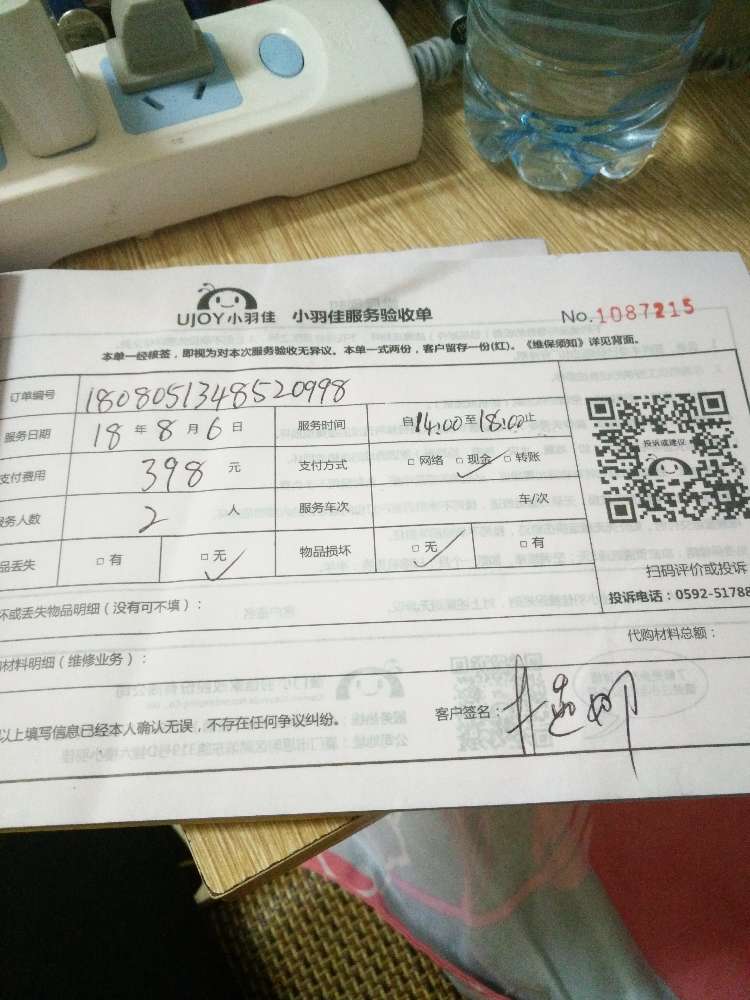 UJOY小羽佳 小羽佳服务验收单 No.1087215
本单一经核签，即视为对本次服务验收无异议。本单一式两份，客户留存一份(红)。《维保须知》详见背面。
订单编号 1808051348520998
服务日期 18 年 8 月 6 日 服务时间 自14:00至18:00止
支付费用 398 元 支付方式 □ 网络 □ 现金 ✓ □ 转账
务人数 2 人 服务车次 车/次
品丢失 □ 有 □ 无 ✓ 物品损坏 □ 无 ✓ □ 有
投诉或建议
扫码评价或投诉
坏或丢失物品明细（没有可不填）： 投诉电话：0592-51788
代购材料总额：
材料明细（维修业务）：
以上填写信息已经本人确认无误，不存在任何争议纠纷。 客户签名：